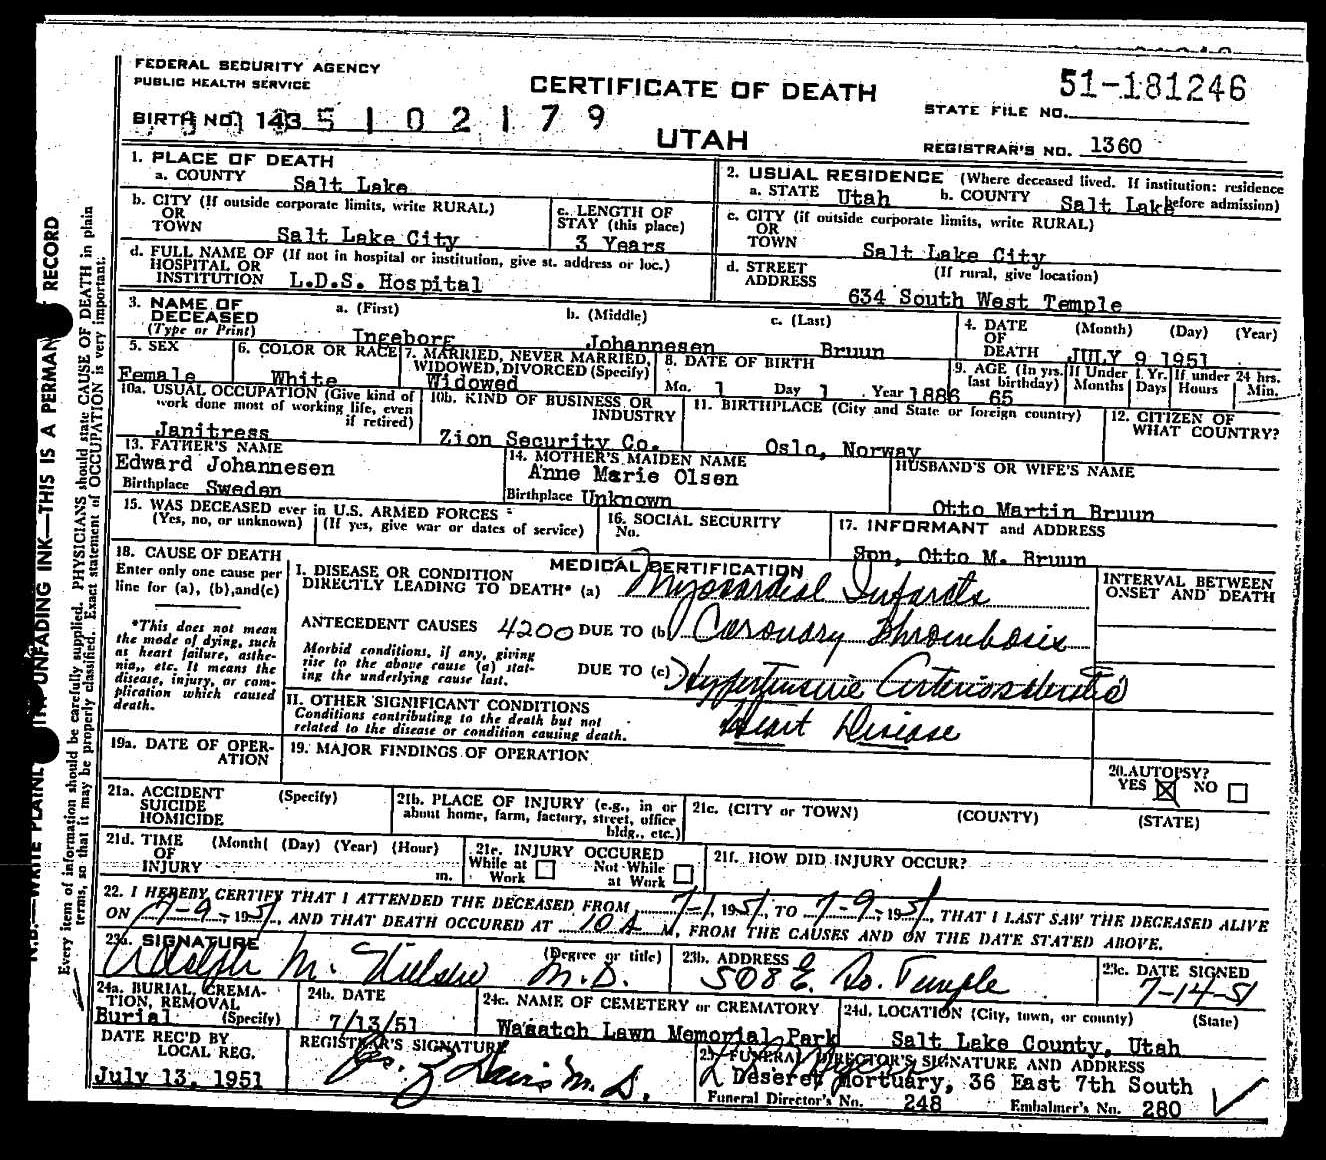 FEDERAL SECURITY AGENCY
PUBLIC HEALTH SERVICE
CERTIFICATE OF DEATH
UTAH
51-181246
STATE FILE NO.
BIRTH NO. 143 5 1 0 2 1 7 9
REGISTRAR'S NO. 1360
1. PLACE OF DEATH
a. COUNTY Salt Lake
b. CITY (If outside corporate limits, write RURAL)
OR
TOWN Salt Lake City
c. LENGTH OF
STAY (this place)
3 Years
d. FULL NAME OF (If not in hospital or institution, give st. address or loc.)
HOSPITAL OR
INSTITUTION L.D.S. Hospital
2. USUAL RESIDENCE (Where deceased lived. If institution: residence
before admission)
a. STATE Utah b. COUNTY Salt Lake
c. CITY (if outside corporate limits, write RURAL)
OR
TOWN Salt Lake City
d. STREET (If rural, give location)
ADDRESS
634 South West Temple
3. NAME OF
DECEASED
(Type or Print)
a. (First) b. (Middle) c. (Last)
Ingeborg Johannesen Bruun
4. DATE (Month) (Day) (Year)
OF
DEATH JULY 9 1951
5. SEX
Female
6. COLOR OR RACE
White
7. MARRIED, NEVER MARRIED,
WIDOWED, DIVORCED (Specify)
Widowed
8. DATE OF BIRTH
Mo. 1 Day 1 Year 1886
9. AGE (In yrs. last birthday)
65
If Under 1 Yr.
Months Days
If under 24 hrs.
Hours Min.
10a. USUAL OCCUPATION (Give kind of
work done most of working life, even
if retired)
Janitress
10b. KIND OF BUSINESS OR
INDUSTRY
Zion Security Co.
11. BIRTHPLACE (City and State or foreign country)
Oslo, Norway
12. CITIZEN OF
WHAT COUNTRY?
13. FATHER'S NAME
Edward Johannesen
Birthplace Sweden
14. MOTHER'S MAIDEN NAME
Anne Marie Olsen
Birthplace Unknown
HUSBAND'S OR WIFE'S NAME
Otto Martin Bruun
15. WAS DECEASED ever in U.S. ARMED FORCES
(Yes, no, or unknown) (If yes, give war or dates of service)
16. SOCIAL SECURITY
No.
17. INFORMANT and ADDRESS
Son, Otto M. Bruun
18. CAUSE OF DEATH
Enter only one cause per
line for (a), (b), and (c)
*This does not mean
the mode of dying, such
as heart failure, asthe-
nia,, etc. It means the
disease, injury, or com-
plication which caused
death.
MEDICAL CERTIFICATION
I. DISEASE OR CONDITION
DIRECTLY LEADING TO DEATH* (a) Myocardial Infarcts
ANTECEDENT CAUSES 4200 DUE TO (b) Coronary Thrombosis
Morbid conditions, if any, giving
rise to the above cause (a) stat-
ing the underlying cause last.
DUE TO (c) Hypertensive Arteriosclerotic
Heart Disease
II. OTHER SIGNIFICANT CONDITIONS
Conditions contributing to the death but not
related to the disease or condition causing death.
INTERVAL BETWEEN
ONSET AND DEATH
19a. DATE OF OPER-
ATION
19. MAJOR FINDINGS OF OPERATION
20. AUTOPSY?
YES ☒ NO ☐
21a. ACCIDENT (Specify)
SUICIDE
HOMICIDE
21b. PLACE OF INJURY (e.g., in or
about home, farm, factory, street, office
bldg., etc.)
21c. (CITY or TOWN) (COUNTY) (STATE)
21d. TIME (Month( (Day) (Year) (Hour)
OF
INJURY m.
21e. INJURY OCCURED
While at Work ☐ Not While at Work ☐
21f. HOW DID INJURY OCCUR?
22. I HEREBY CERTIFY THAT I ATTENDED THE DECEASED FROM 7-1, 1951, TO 7-9, 1951, THAT I LAST SAW THE DECEASED ALIVE
ON 7-9, 1951, AND THAT DEATH OCCURED AT 10 A M, FROM THE CAUSES AND ON THE DATE STATED ABOVE.
23a. SIGNATURE (Degree or title)
Adolph M. Nielsen M.D.
23b. ADDRESS
508 E. So. Temple
23c. DATE SIGNED
7-14-51
24a. BURIAL, CREMA-
TION, REMOVAL
Burial (Specify)
24b. DATE
7/13/51
24c. NAME OF CEMETERY or CREMATORY
Wasatch Lawn Memorial Park
24d. LOCATION (City, town, or county) (State)
Salt Lake County, Utah
DATE REC'D BY
LOCAL REG.
July 13, 1951
REGISTRAR'S SIGNATURE
M. D.
25. FUNERAL DIRECTOR'S SIGNATURE AND ADDRESS
Deseret Mortuary, 36 East 7th South
Funeral Director's No. 248 Embalmer's No. 280
N.B.—WRITE PLAINLY UNFADING INK—THIS IS A PERMANENT RECORD
Every item of information should be carefully supplied. PHYSICIANS should state CAUSE OF DEATH in plain
terms, so that it may be properly classified. Exact statement of OCCUPATION is very important.